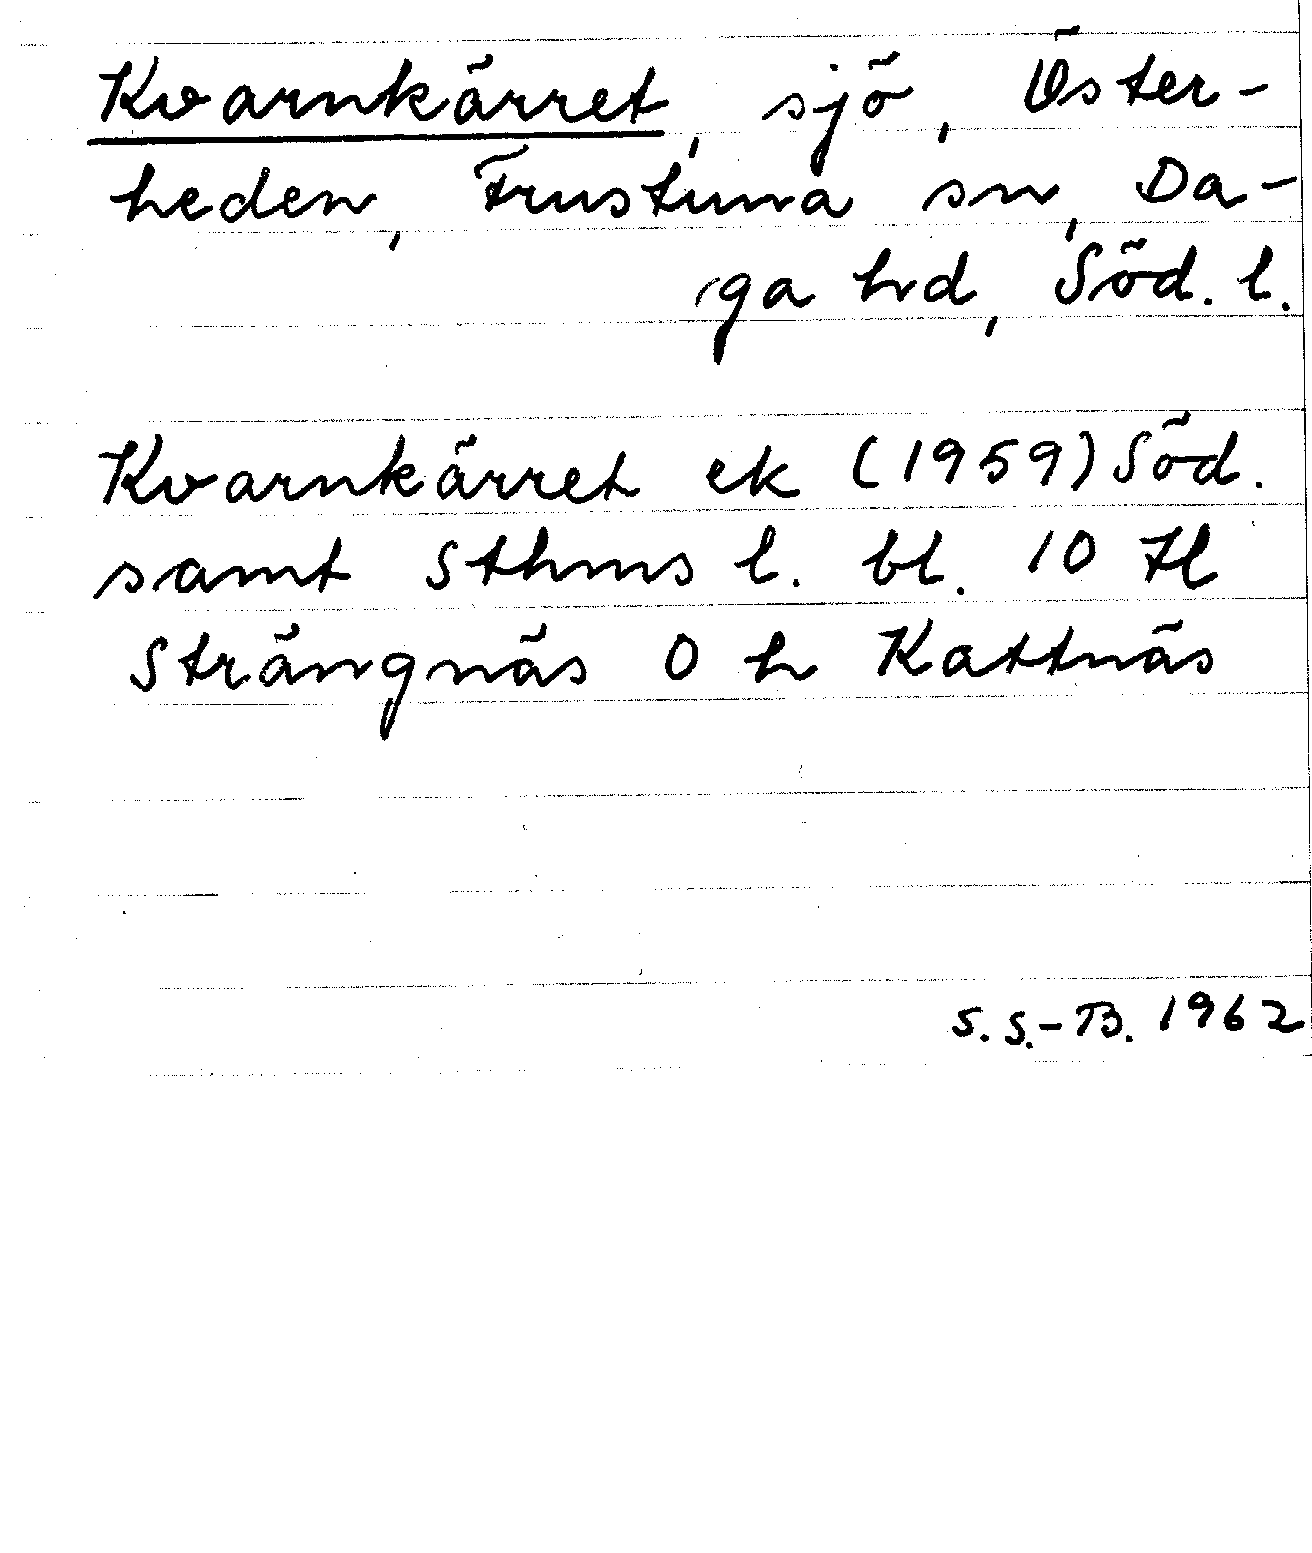 Kvarnkärret, sjö, Öster-
heden, Frustuna sn, Da-
ga hd, Söd. l.
Kvarnkärret ek (1959) Söd.
samt Sthms l. bl. 10 H
Strängnäs O h Kattnäs
S. S.-B. 1962